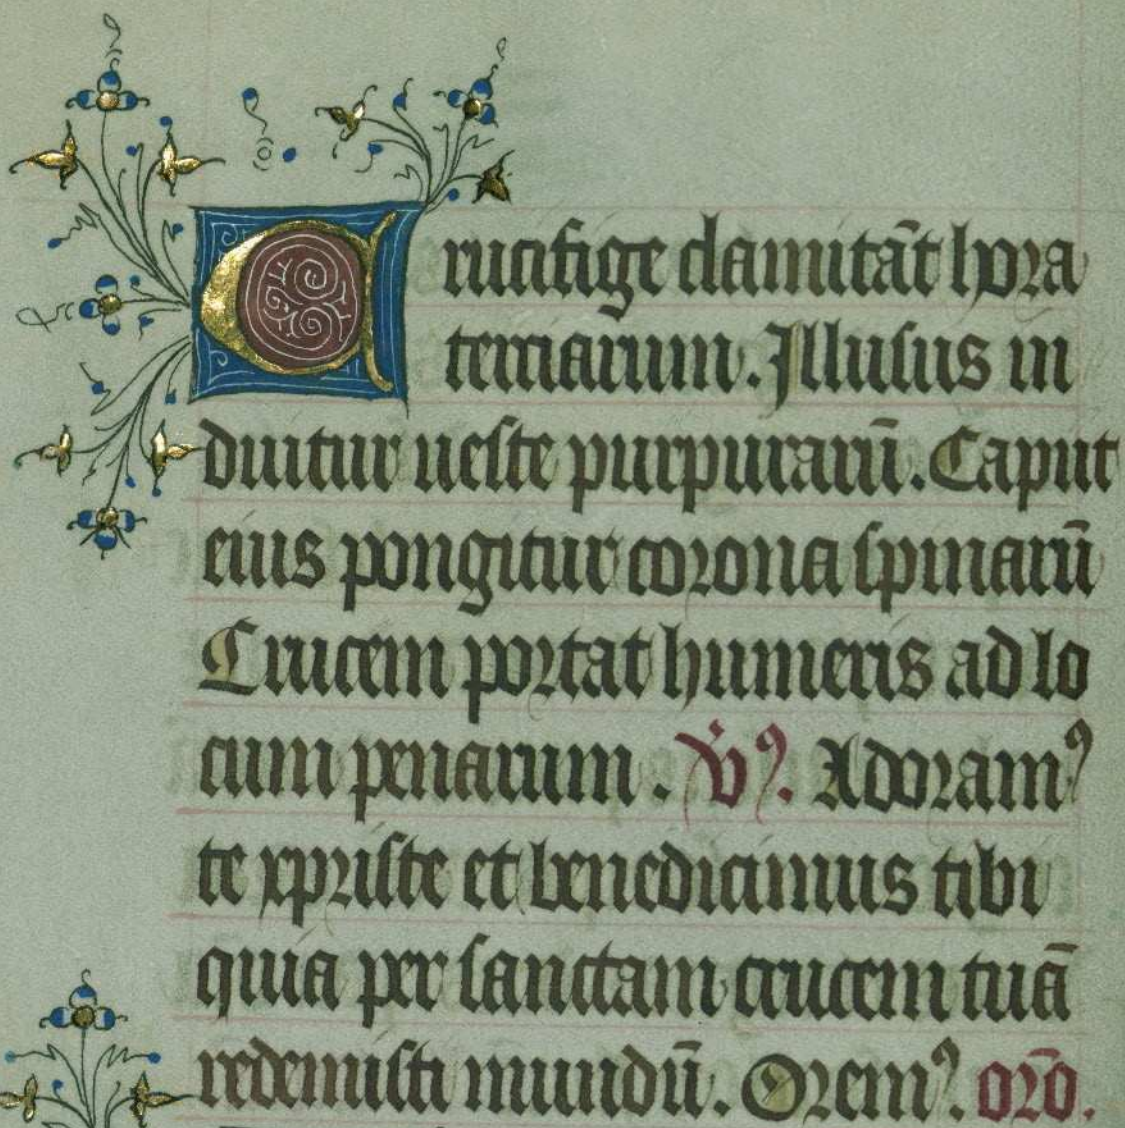 Crucifige clamitāt hora
terciarum. Illusus in
duitur ueste purpurarū. Caput
eius pongitur corona spinarū
Crucem portat humeris ad lo
cum penarum. V̇ꝰ. Adoramꝰ
te xpriste et benedicimus tibi
quia per sanctam crucem tuā
redemisti mundū. Oremꝰ. orō.